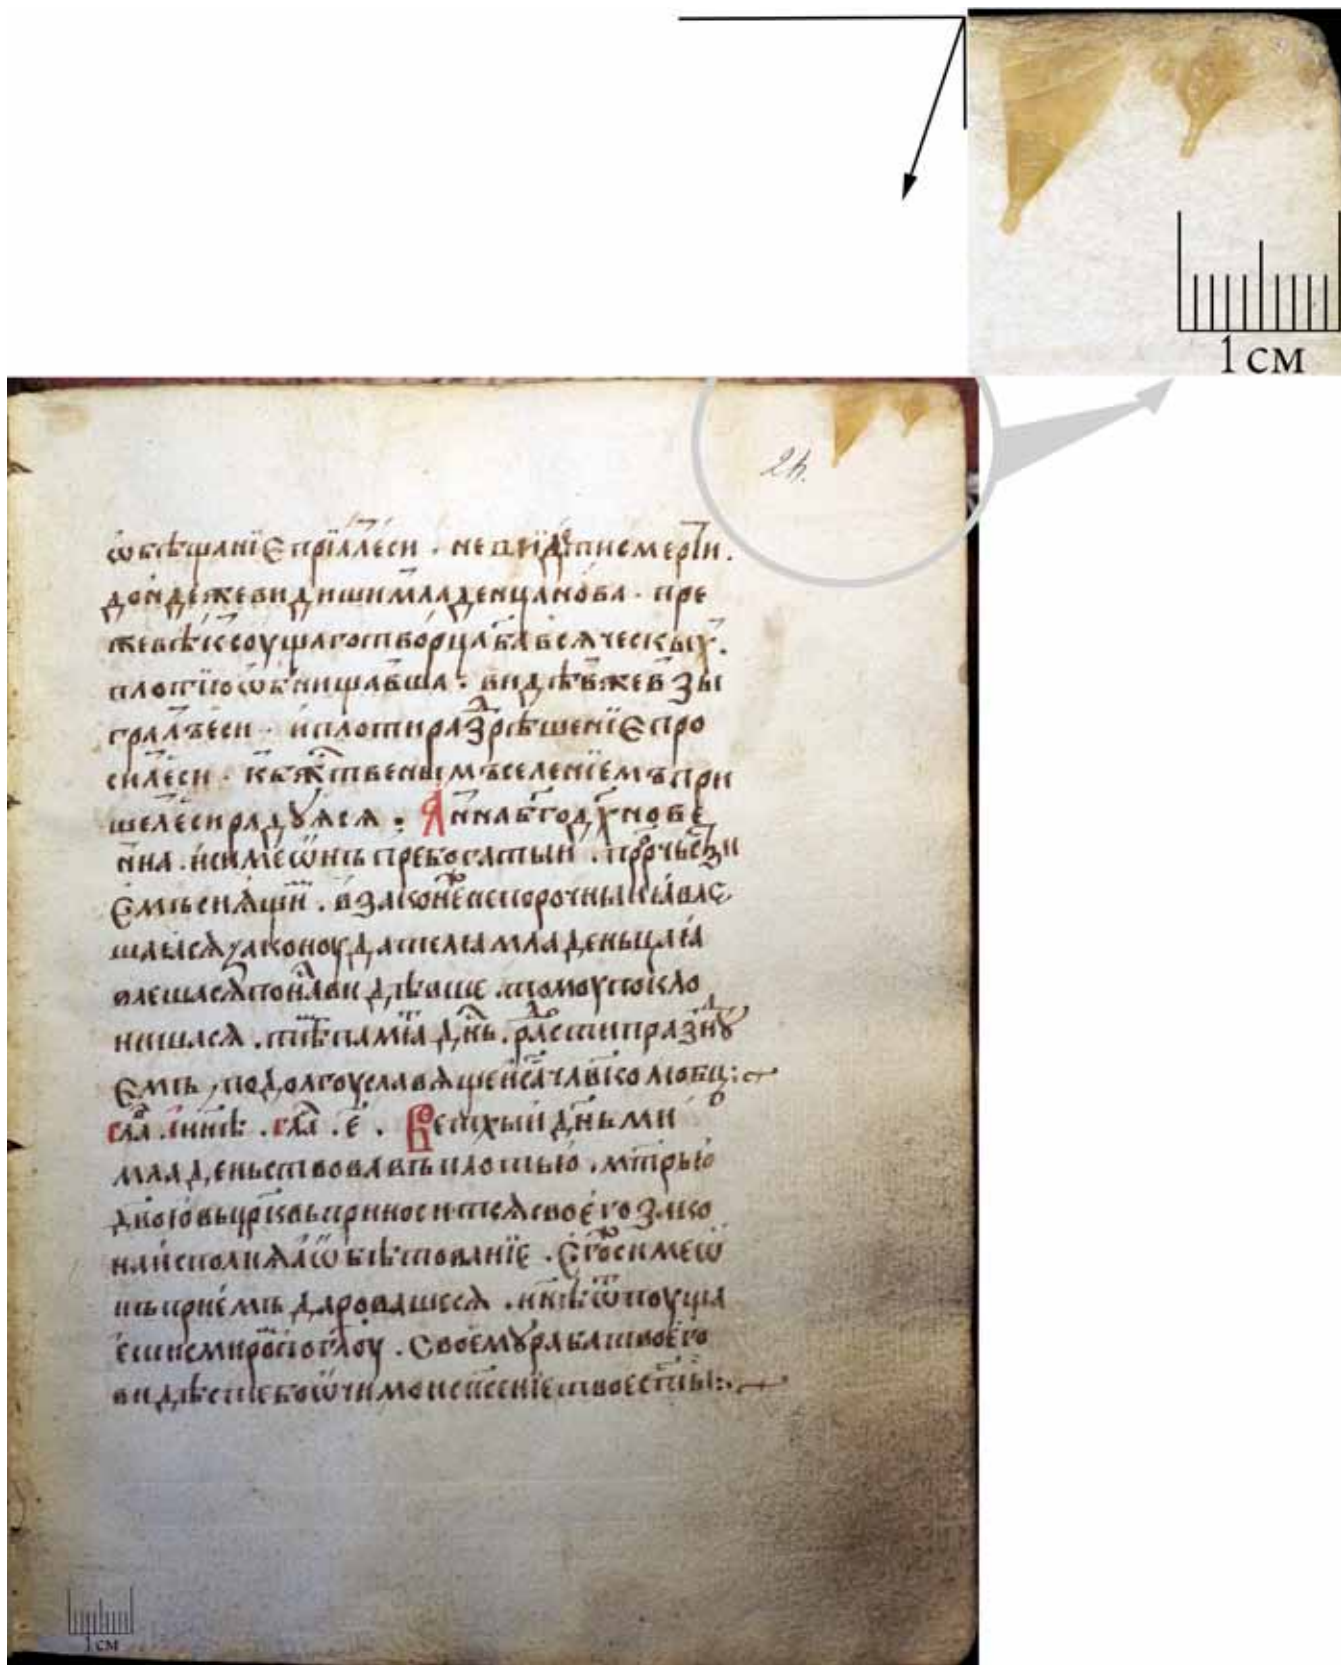 1 см
24.
ѡбѣщанїе прїѧлъ еси . не видѣти смерти .
дондеже видиши младенца нова . пре
же вѣкъ соущаго творца ба всѧческых .
плотїю ѡбнищавша . видѣвже взы
гралъ еси . и плоти разрѣшенїе про
силъ еси . къ бжтвенымъ селенїемъ при
шелъ еси радуѧсѧ . Анна бгодхнове
нна . и симеѡнъ пребогатыи . пррчьс
. в законе непорочнѣ
законоудателѧ младеньца
видѣвше . томоу покло
нишасѧ . днь . празну
емъ , чавколюбц :
сла . инн҃ѣ . гла . е . Ветхыи дньми
младеньствовавъ плотью . мтрью
двою въ црквь приноситсѧ своего зако
на исполнѧѧ ѡбѣтованїе . Его симеѡ
нъ прiемъ . ннѣ ѿпоуща
еши с миро по глоу . своему раба твоего
видѣстѣ бо ѡчи мои спсенїе твое
1 см